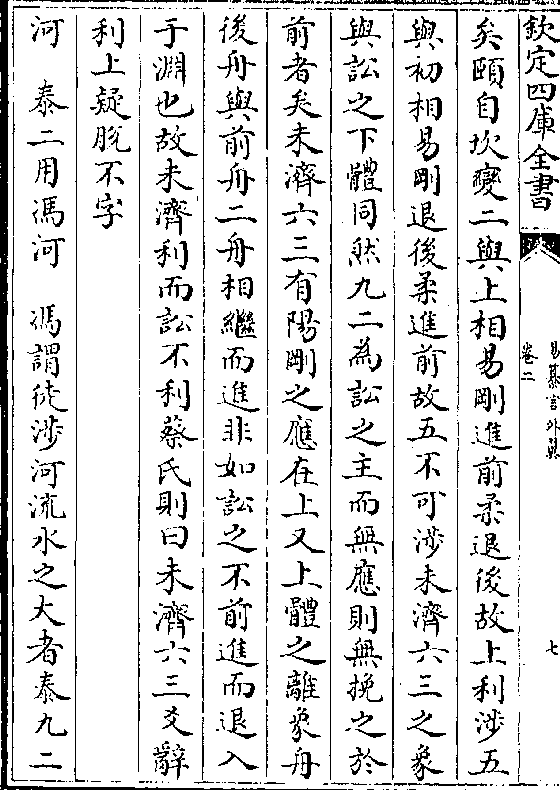 欽定四庫全書
卷二
七
矣頤自坎變二與上相易剛進前柔退後故上利涉五
與初相易剛退後柔進前故五不可涉未濟六三之象
與訟之下體同然九二為訟之主而無應則無挽之於
前者矣未濟六三有陽剛之應在上又上體之離象舟
後舟與前舟二舟相繼而進非如訟之不前進而退入
于淵也故未濟利而訟不利蔡氏則曰未濟六三爻辭
利上疑脫不字
河　泰二用馮河　馮謂徒涉河流水之大者泰九二